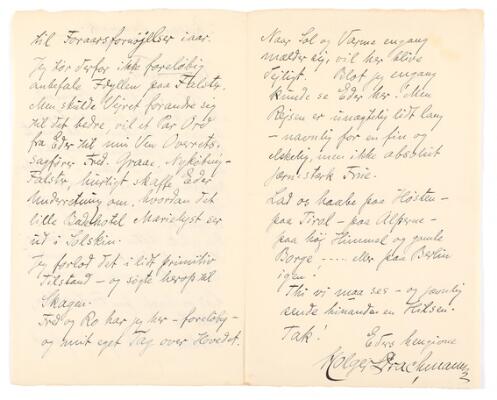 til Foraarsfornøjelser iaar.
Jeg tør derfor ikke foreløbig
anbefale Idyllen paa Falster.
Men skulde Vejret forandre sig
til det bedre, vil et Par Ord
fra Eder til min Ven Overrets-
sagfører Fred. Graae, Nykøbing-
Falster, hurtigt skaffe Eder
Underretning om, hvordan det
lille Badehotel Marielyst ser
ud i Solskin.
Jeg forlod det i lidt primitiv
Tilstand – og søgte herop til
Skagen.
Fred og Ro har jeg her – foreløbig –
og mit eget Tag over Hovedet.
Naar Sol og Varme engang
melder sig, vil her blive
dejligt. Blot jeg engang
kunde se Eder her. Men
Rejsen er unægtelig lidt lang
– navnlig for en fin og
elskelig, men ikke absolut
jern-stærk Frue.
Lad os haabe paa Høsten –
paa Tirol – paa Alperne –
paa høj Himmel og gamle
Borge ..... eller paa Berlin
igen!
Thi vi maa ses – og jævnlig
sende hinanden en Hilsen.
Tak!
Eders hengivne
Holger Drachmann